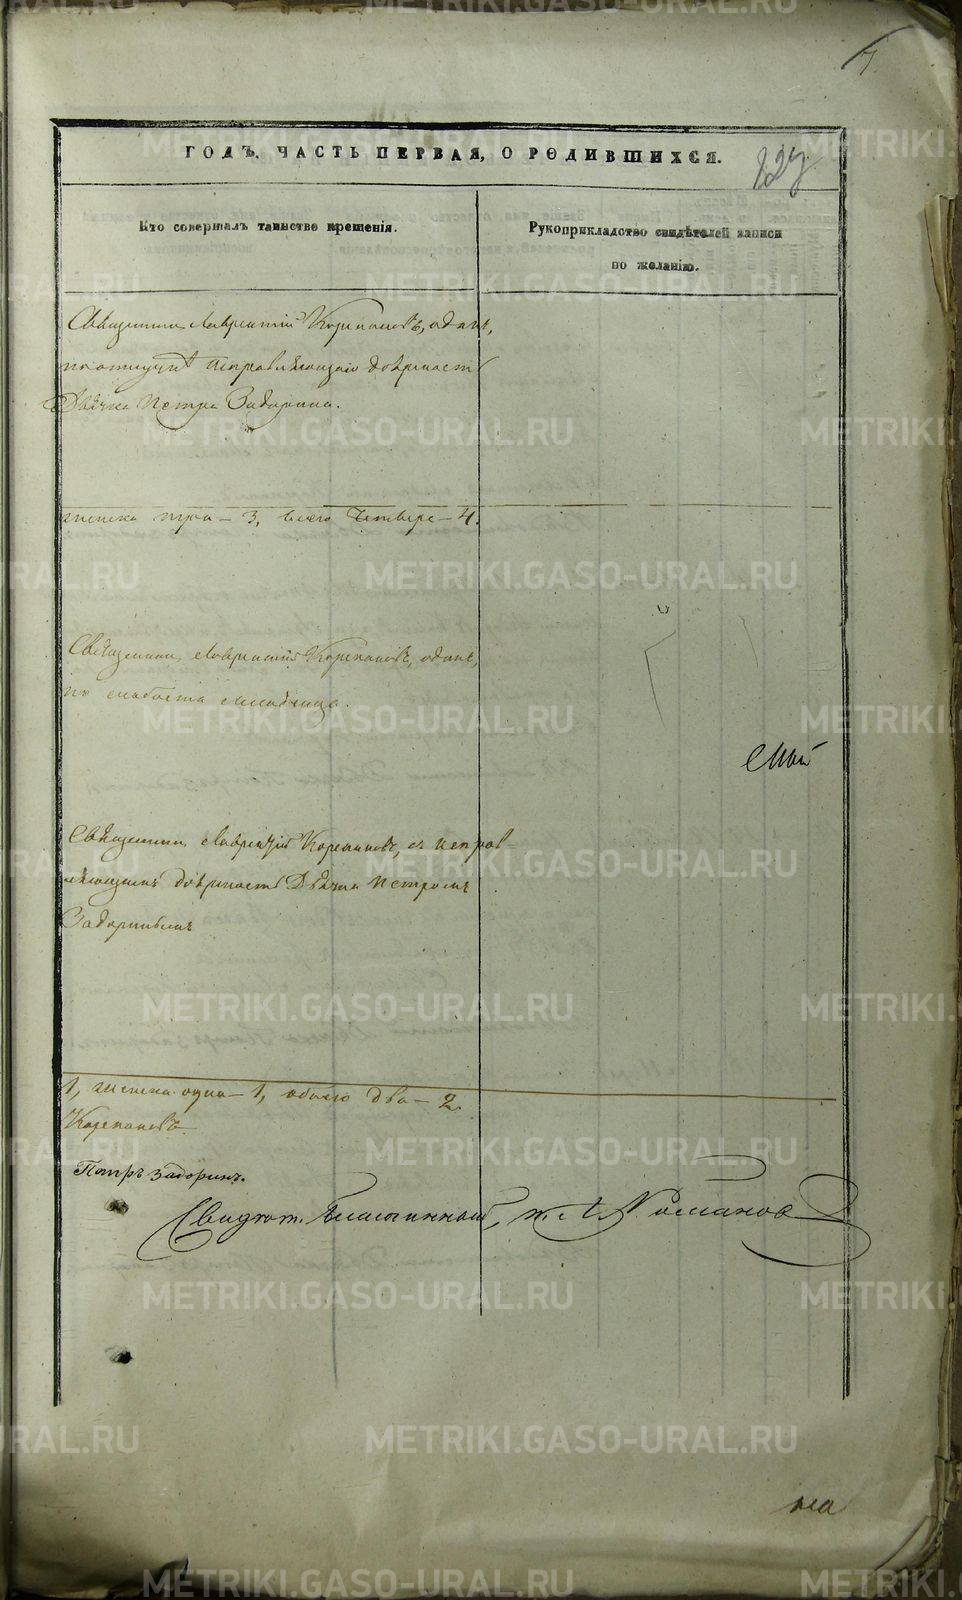 7
ГОДЪ, ЧАСТЬ ПЕРВАЯ, О РОДИВШИХСЯ.
Кто совершалъ таинство крещенія.
Рукоприкладство свидѣтелей записи
по желанію.
Священникъ Лаврентій Корепановъ, одинъ,
исправляющаго должность
Дьячка Петра Задорина.
женска три – 3, всего четыре – 4.
Священникъ Лаврентій Корепановъ, одинъ,
по слабости младенца.
Священникъ Лаврентій Корепановъ, съ исправ-
ляющимъ должность Дьячка Петромъ
Задоринымъ
1, женска одна – 1, обоего два – 2.
Корепановъ
Петръ Задоринъ.
Романовъ
METRIKI.GASO-URAL.RU